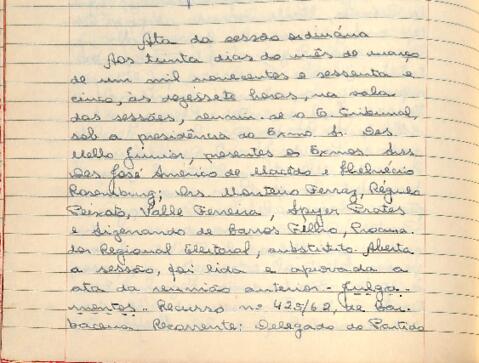 Ata da sessão ordinária
Aos trinta dias do mês de março
de um mil novecentos e sessenta e
cinco, às dezessete horas, na sala
das sessões, reuniu-se o E. Tribunal,
sob a presidência do Exmo. Sr. Des.
Mello Júnior, presentes os Exmos. Srs.
Des. José Américo de Macêdo e
Rosemburg; Drs. Monteiro Ferraz, Régulo
Peixoto, Valle Ferreira, Spyer Prates
e Sizenando de Barros Filho, Procura-
dor Regional Eleitoral, substituto. Aberta
a sessão, foi lida e aprovada a
ata da reunião anterior. - Julga-
mentos - Recurso nº 425/62, de Bar-
bacena Recorrente: Delegado do Partido